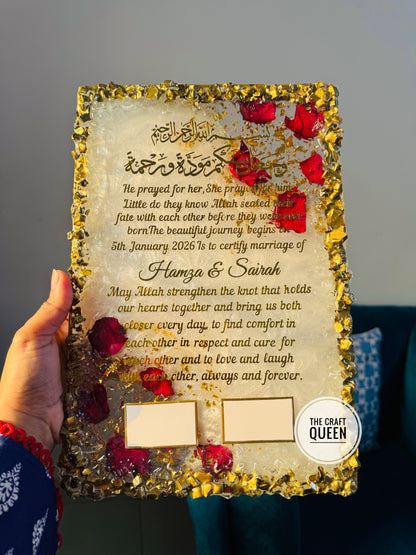 بسم الله الرحمن الرحيم
مودة ورحمة
He prayed for her, She prayed for him
Little do they know Allah sealed their
fate with each other before they were
born.The beautiful journey begins on
5th January 2026 Is to certify marriage of
Hamza & Sairah
May Allah strengthen the knot that holds
our hearts together and bring us both
closer every day, to find comfort in
each other in respect and care for
each other and to love and laugh
with each other, always and forever.
THE CRAFT
QUEEN